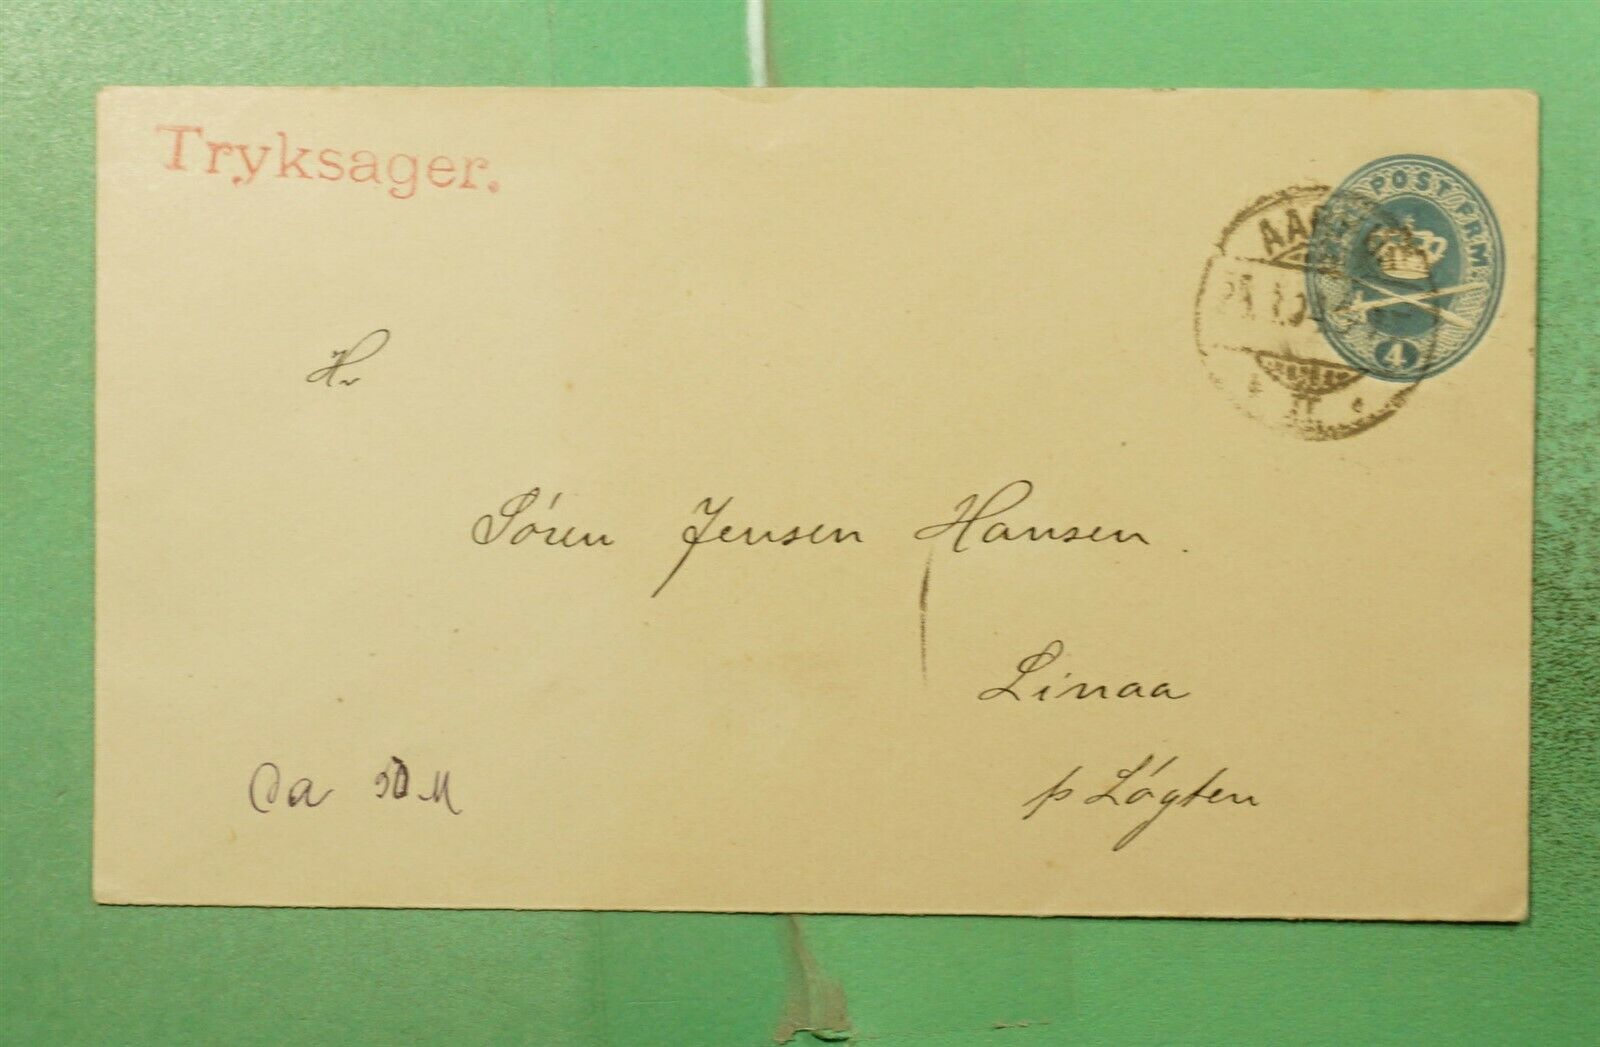 Tryksager.
POST FRM
4
Hr
Sóren Jensen Hansen.
Linaa
p Lógten